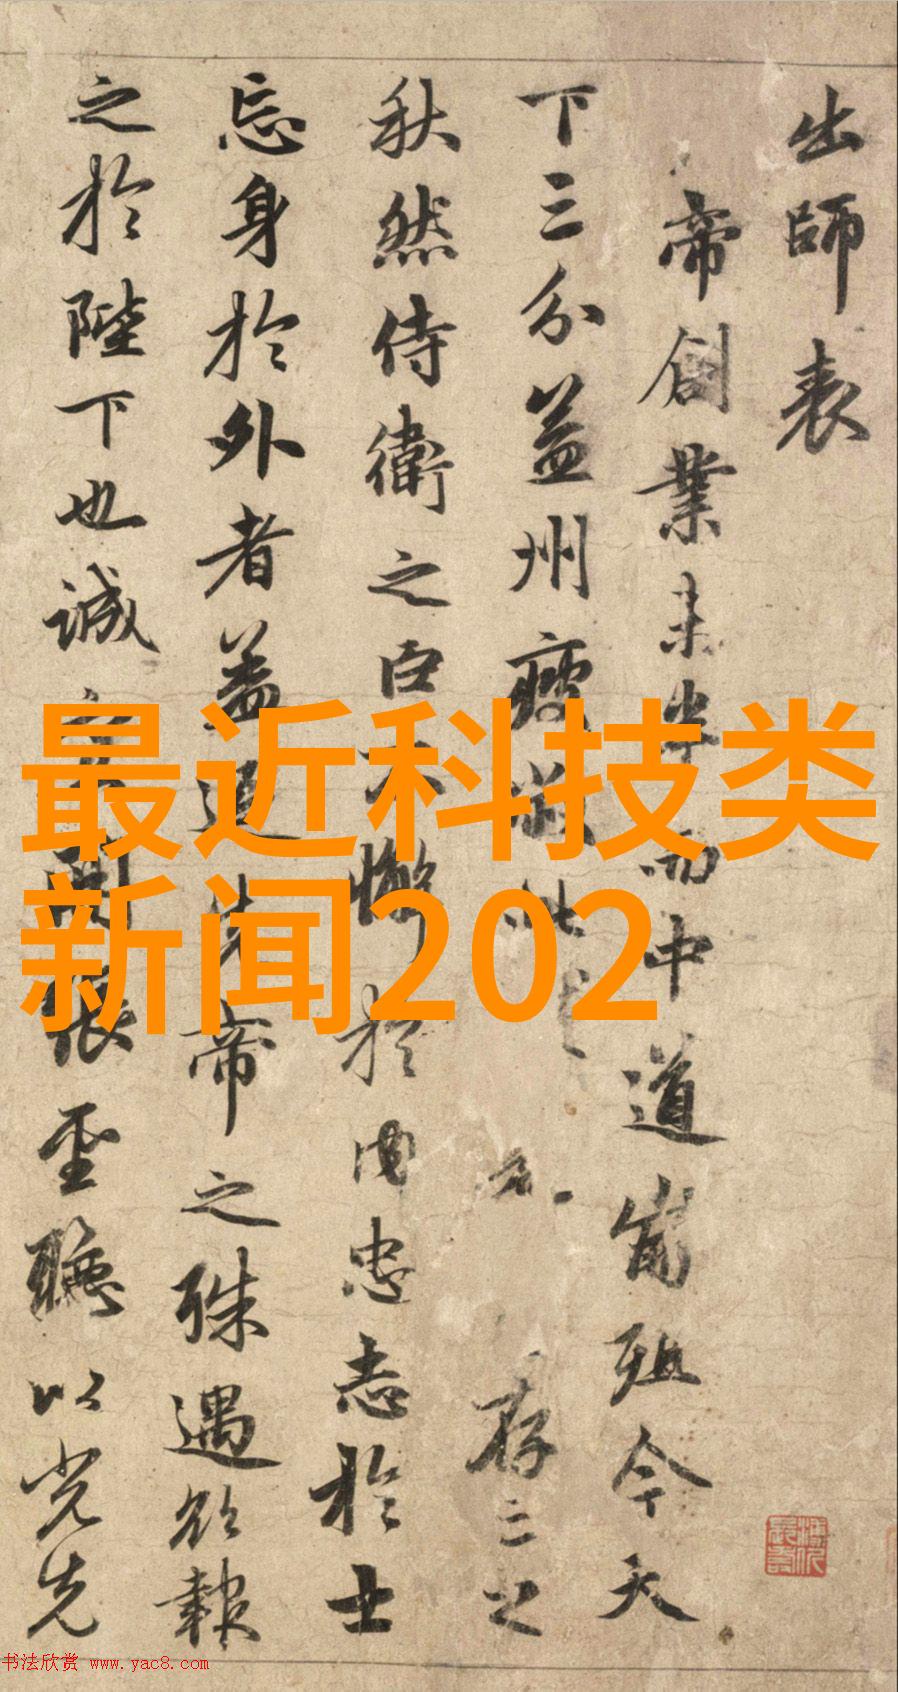 出師表
帝創業未半而中道崩殂今天
下三分益州疲敝此
存亡之
秋然侍衛之臣不懈於內忠志於士
忘身於外者蓋追先帝之殊遇欲報
之於陛下也誠
張聖聽以光先
最近科技类
新闻202
书法欣赏 www.yac8.com